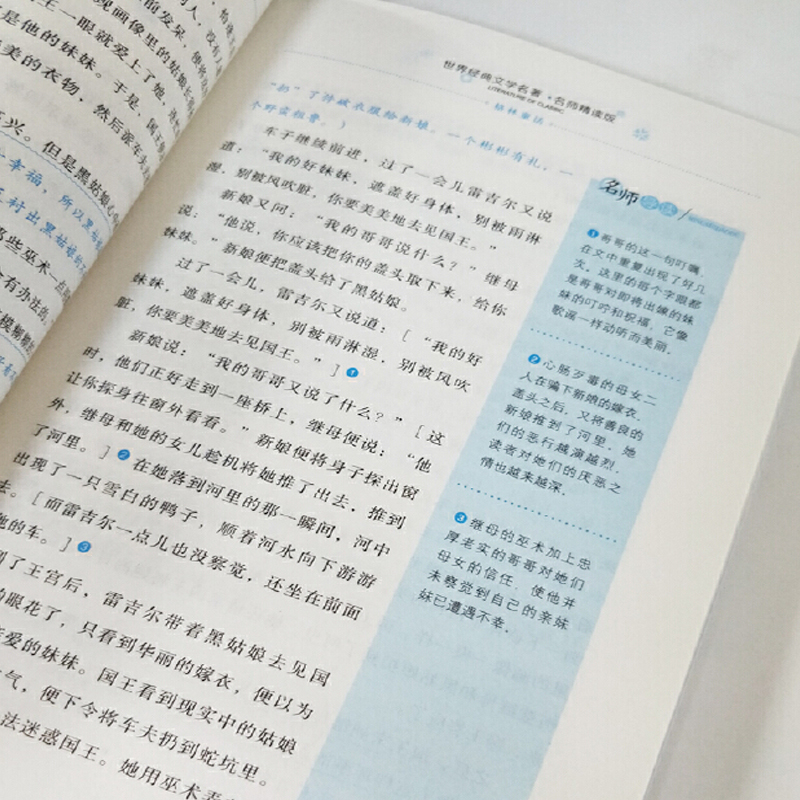 王一眼就爱上了她，
是他的妹妹。于是，国王
美的衣物，然后派车
兴。但是黑姑娘
幸福，所以黑姑
衬出黑姑娘的
那些巫术一点
有办法
世界经典文学名著·名师精读版
LITERATURE OF CLASSIC
·格林童话·
“扔”了件破衣服给新娘。一个彬彬有礼，一
个野蛮粗鲁。）
车子继续前进，过了一会儿雷吉尔又说
道：“我的好妹妹，遮盖好身体，别被雨淋
湿，别被风吹脏，你要美美地去见国王。”
新娘又问：“我的哥哥说什么？”继母
说：“他说，你应该把你的盖头取下来，给你
妹妹。”新娘便把盖头给了黑姑娘。
过了一会儿，雷吉尔又说道：[“我的好
妹妹，遮盖好身体，别被雨淋湿，别被风吹
脏，你要美美地去见国王。”]①
新娘说：“我的哥哥又说了什么？”[这
时，他们正好走到一座桥上，继母便说：“他
让你探身往窗外看看。”新娘便将身子探出窗
外，继母和她的女儿趁机将她推了出去，推到
了河里。]②在她落到河里的那一瞬间，河中
出现了一只雪白的鸭子，顺着河水向下游游
去。[而雷吉尔一点儿也没察觉，还坐在前面
他的车。]③
到了王宫后，雷吉尔带着黑姑娘去见国
的眼花了，只看到华丽的嫁衣，便以为
亲爱的妹妹。国王看到现实中的姑娘
气，便下令将车夫扔到蛇坑里。
法迷惑国王。她用巫术弄
名师导读
①哥哥的这一句叮嘱，
在文中重复出现了好几
次。这里的每个字眼都
是哥哥对即将出嫁的妹
妹的叮咛和祝福，它像
歌谣一样动听而美丽。
②心肠歹毒的母女二
人在骗下新娘的嫁衣、
盖头之后，又将善良的
新娘推到了河里，她
们的恶行越演越烈，
读者对她们的厌恶之
情也越来越深。
③继母的巫术加上忠
厚老实的哥哥对她们
母女的信任，使他并
未察觉到自己的亲妹
妹已遭遇不幸。